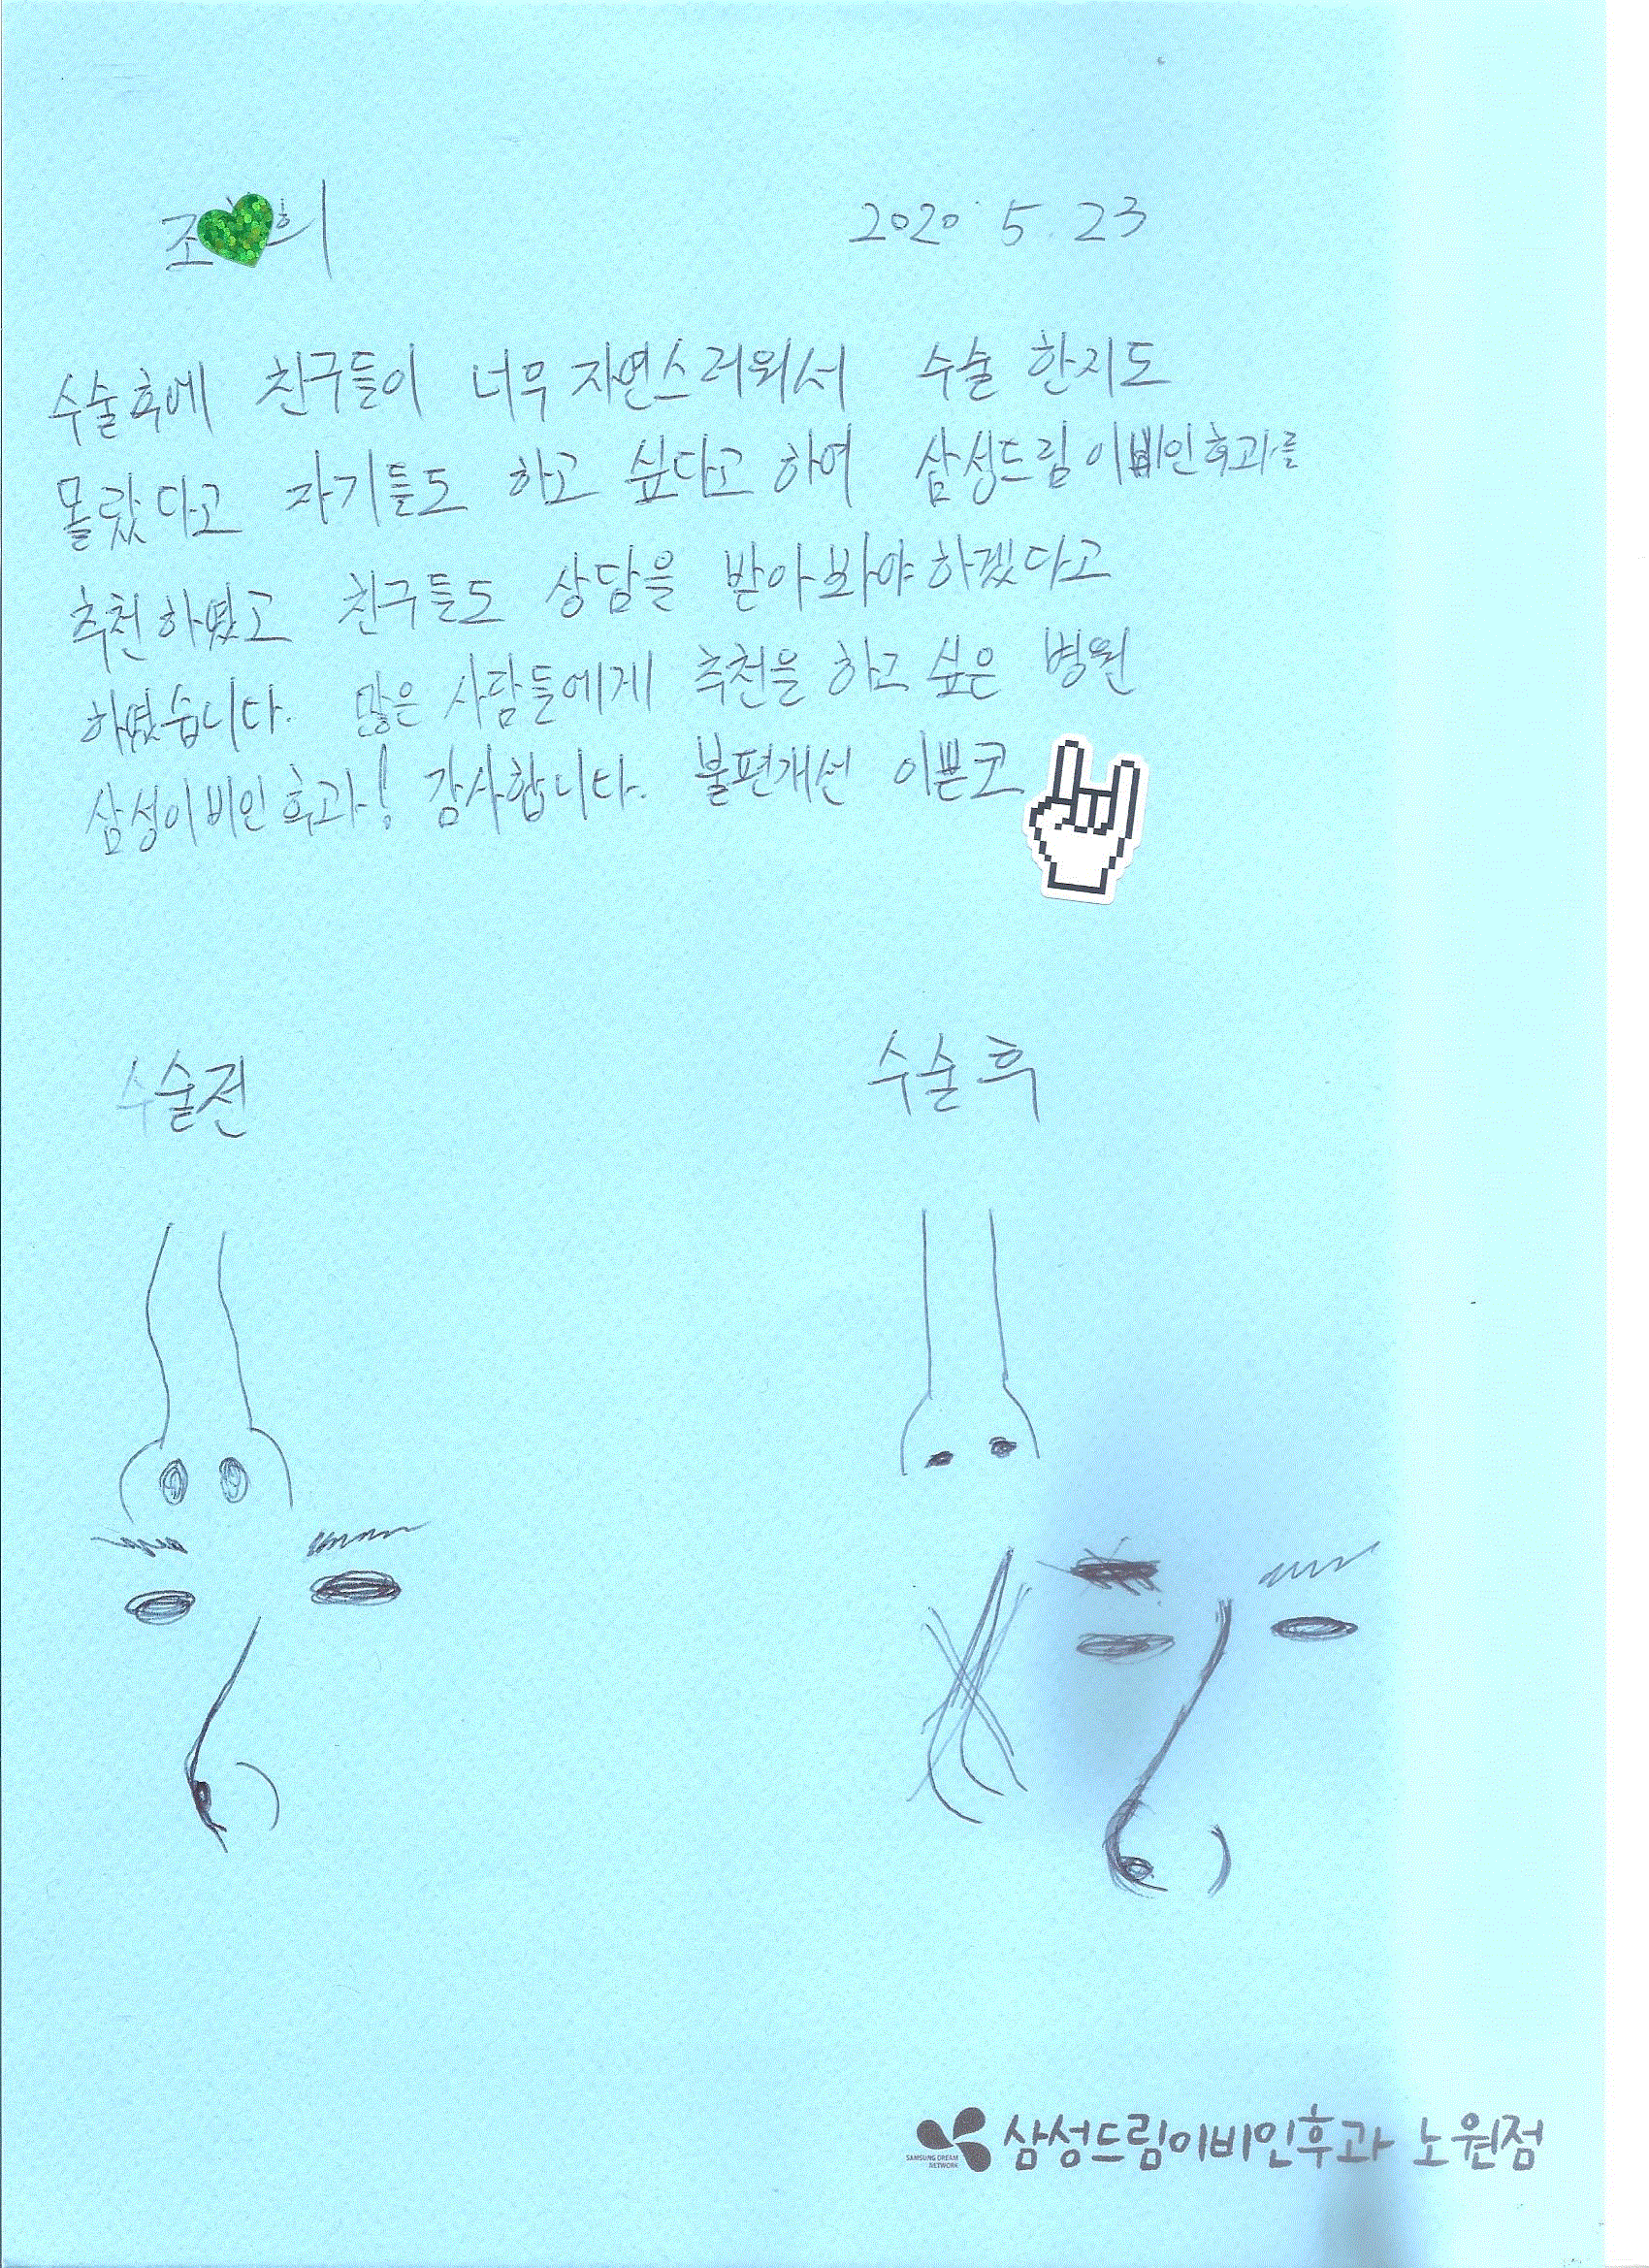 조 희 2020 5. 23
수술후에 친구들이 너무 자연스러워서 수술 한지도
몰랐다고 자기들도 하고 싶다고 하여 삼성드림이비인후과를
추천하였고 친구들도 상담을 받아봐야하겠다고
하였습니다. 많은 사람들에게 추천을 하고 싶은 병원
삼성이비인후과! 감사합니다. 불편개선 이쁜코
수술전 수술후
SAMSUNG DREAM
NETWORK
삼성드림이비인후과 노원점